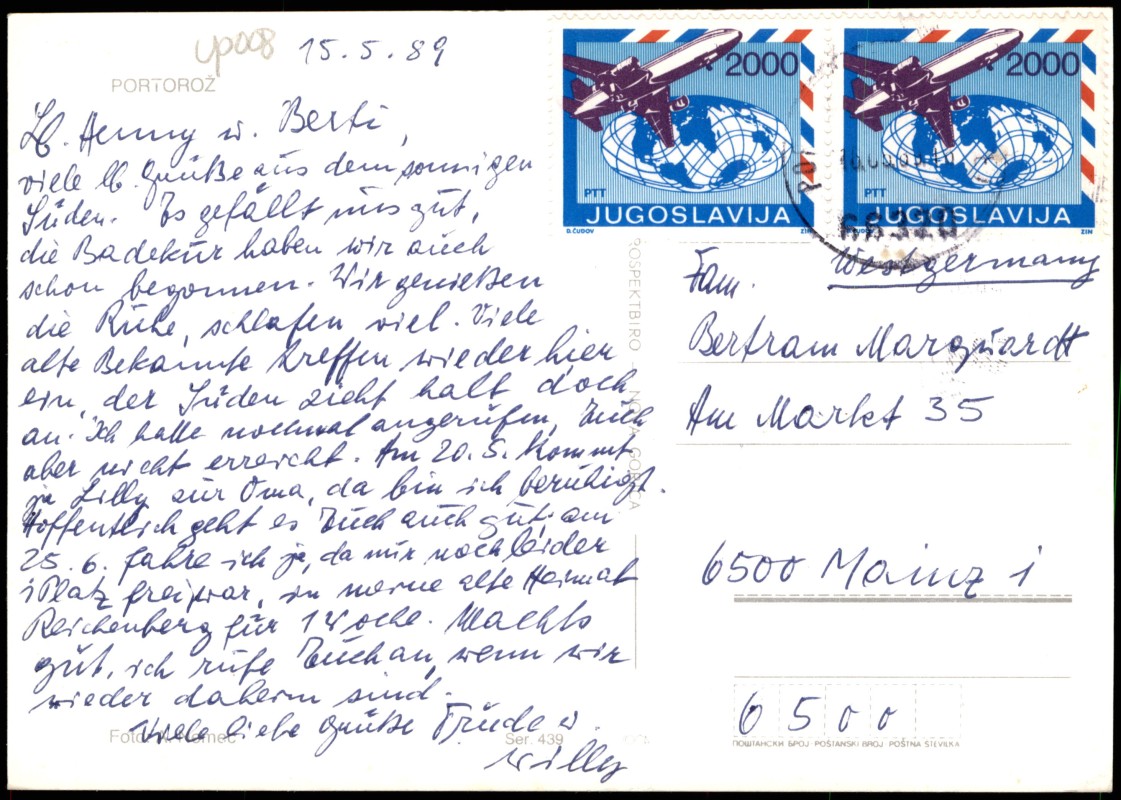 up008
15.5.89
PORTOROŽ
Lb. Henny u. Berti,
viele lb. Grüße aus dem sonnigen
Süden. Es gefällt uns gut,
die Badekur haben wir auch
schon begonnen. Wir genießen
die Ruhe, schlafen viel. Viele
alte Bekannte treffen wieder hier
ein, der Süden zieht halt doch
an. Ich hatte nochmal angerufen, Euch
aber nicht erreicht. Am 20.5. kommt
ja Lilly zur Oma, da bin ich beruhigt.
Hoffentlich geht es Euch auch gut, am
25.6. fahre ich ja, da nur noch leider
1 Platz frei war, in meine alte Heimat
Reichenberg für 1 Woche. Machts
gut, ich rufe Euch an, wenn wir
wieder daheim sind.
Viele liebe Grüße Trude u.
Willy
Foto: Nemec
Ser. 439
2000
PTT
JUGOSLAVIJA
D.ČUDOV
ZIN
2000
PTT
JUGOSLAVIJA
ČUDOV
ZIN
66320
Westgermany
Fam.
Bertram Marquardt
Am Markt 35
6500 Mainz 1
6500
ПОШТАНСКИ БРОЈ POŠTANSKI BROJ POŠTNA ŠTEVILKA
ROSPEKTBIRO NOVA GORICA